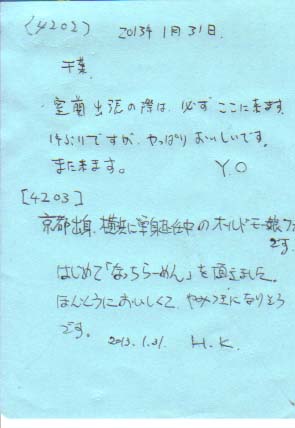 (4202) 2013年1月31日.
千葉.
・室蘭出張の際は、必ずここに来ます.
1年ぶりですが、やっぱりおいしいです。
また来ます。 Y.O
[4203]
京都出身、横浜に単身赴任中のオールドモー娘ファ
です。
はじめて「なっちらーめん」を頂きました。
ほんとうにおいしくて、やみつきになりそう
です。 2013.1.31. H.K.